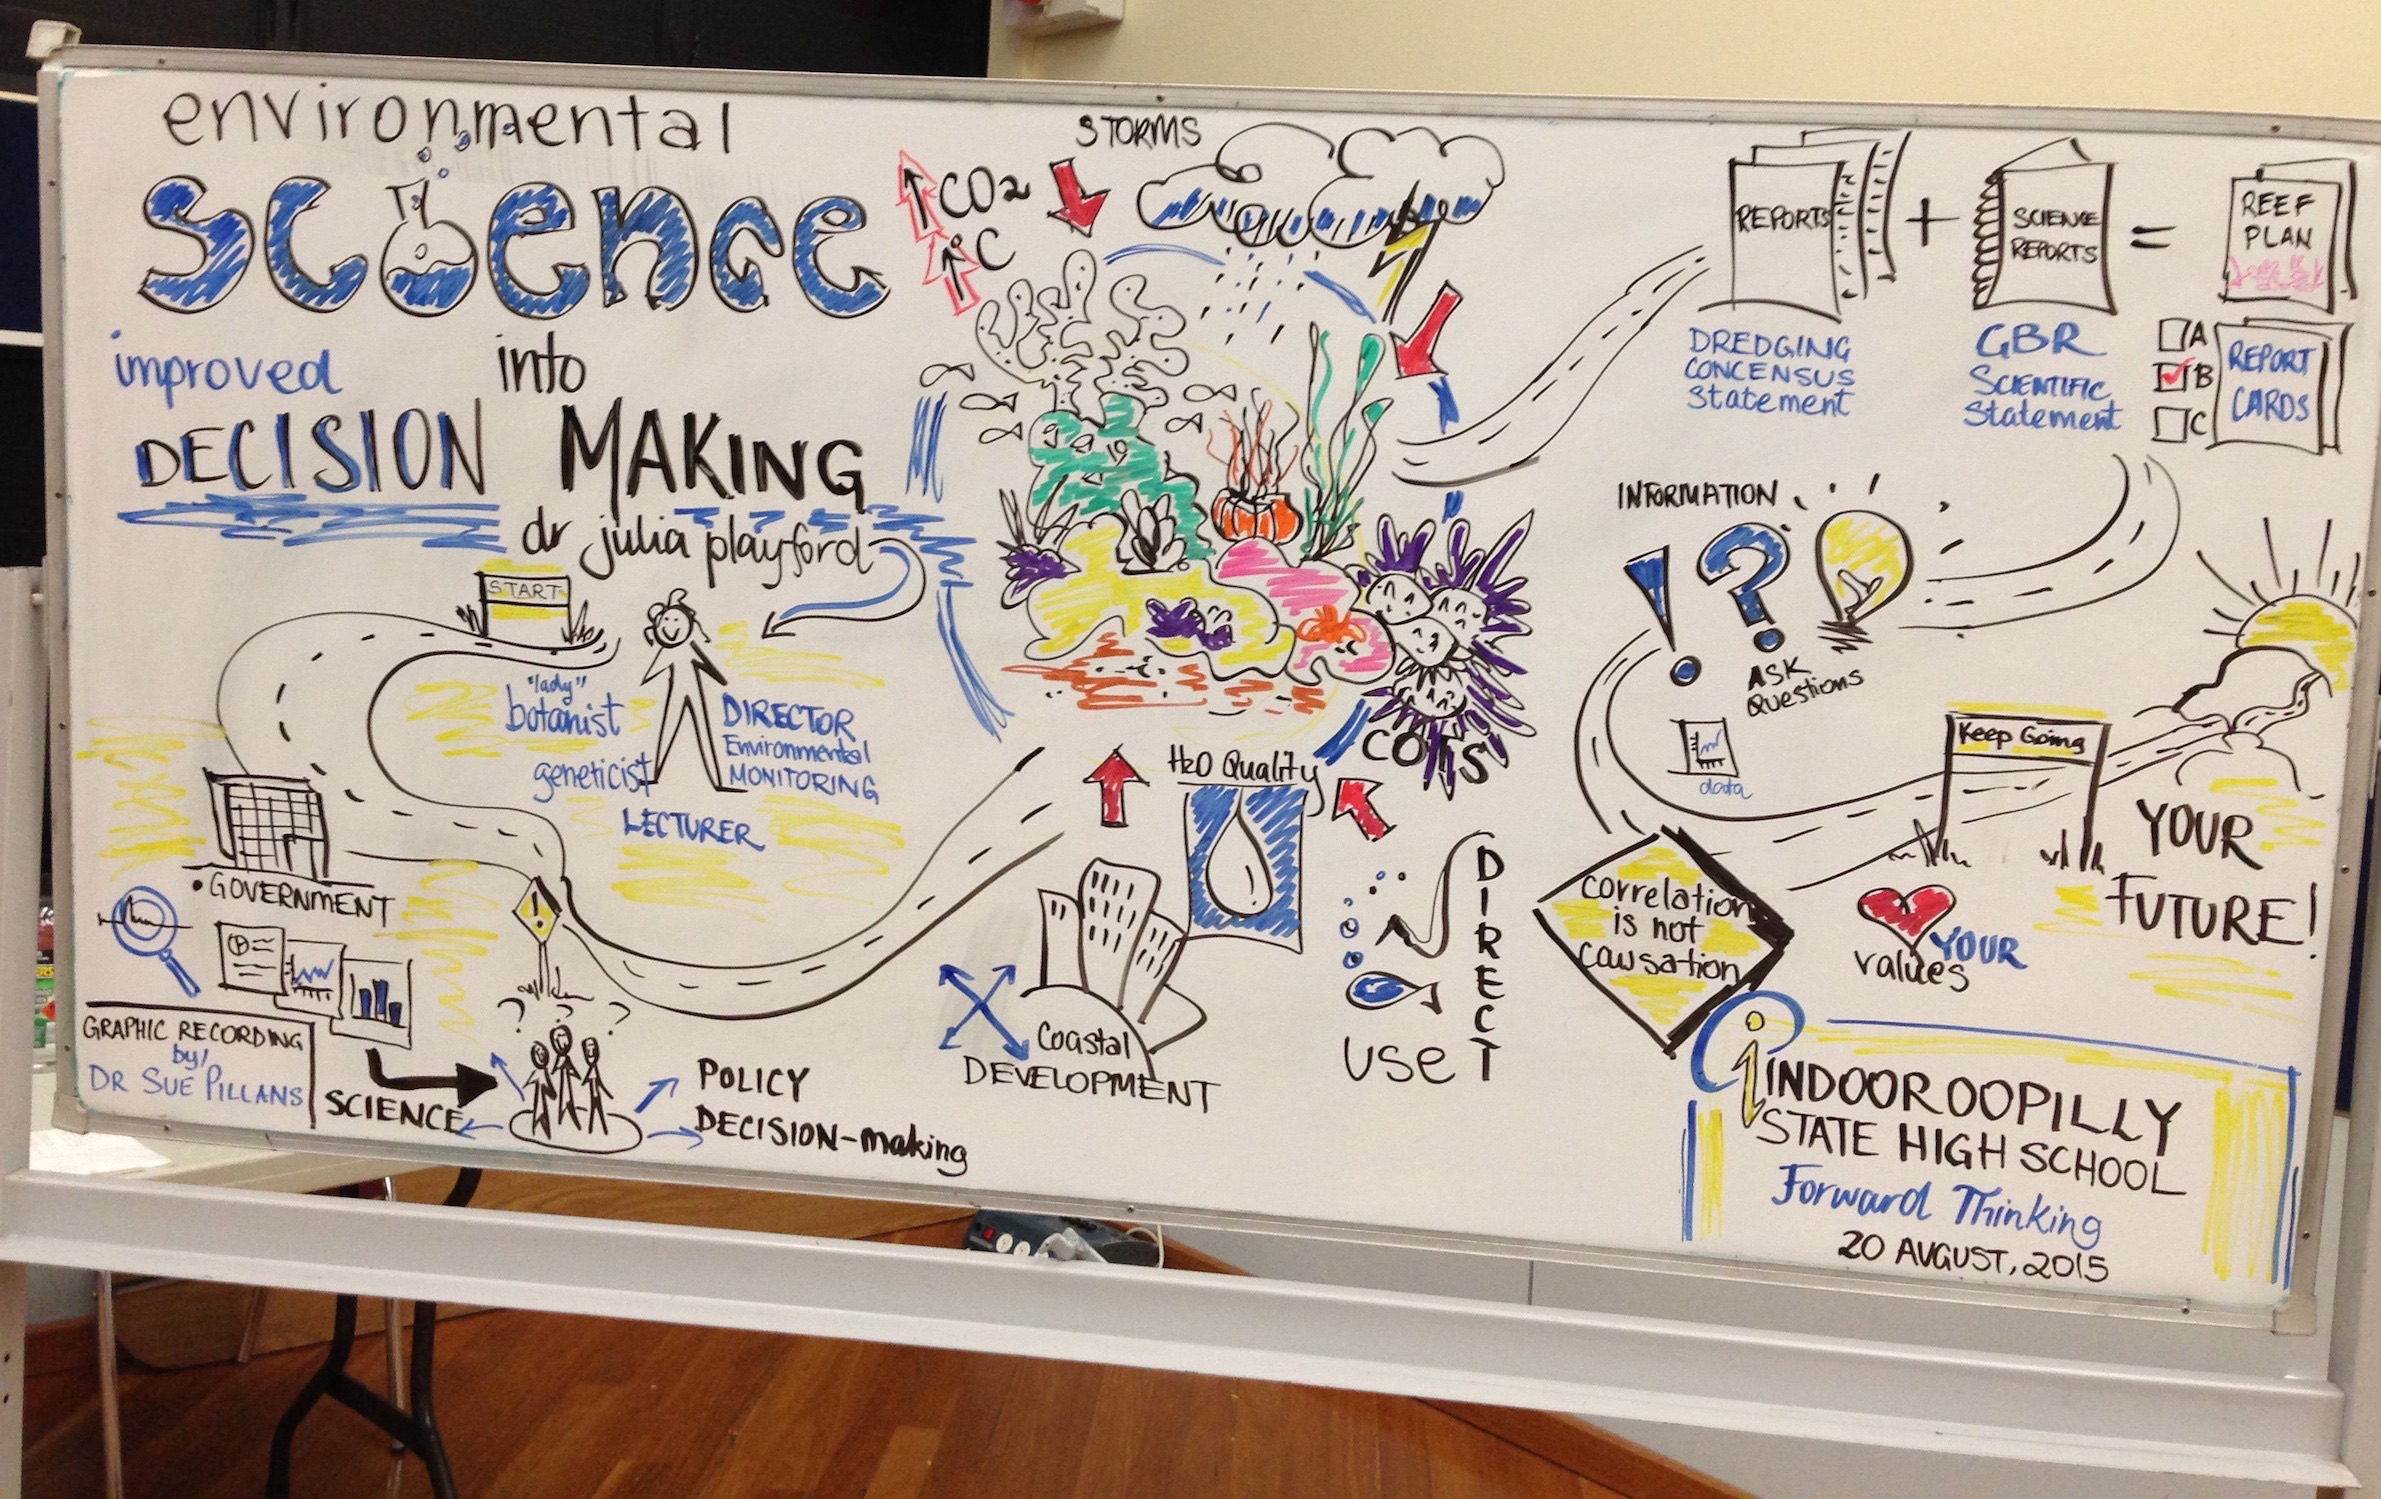 environmental
science
improved into
DECISION MAKING
dr julia playford
START
"lady"
botanist
geneticist
LECTURER
DIRECTOR
Environmental
MONITORING
• GOVERNMENT
GRAPHIC RECORDING
by/
DR SUE PILLANS
SCIENCE
? ? ?
!
POLICY
DECISION-making
CO2
°C
STORMS
COTS
H2O Quality
Coastal
DEVELOPMENT
DIRECT
use
REPORTS
+
SCIENCE
REPORTS
=
REEF
PLAN
DREDGING
CONCENSUS
Statement
GBR
SCIENTIFIC
Statement
A
B
C
REPORT
CARDS
INFORMATION
! ?
ASK
Questions
data
correlation
is not
cawsation
Keep Going
YOUR
values
YOUR
FUTURE!
i
INDOOROOPILLY
STATE HIGH SCHOOL
Forward Thinking
20 AUGUST, 2015